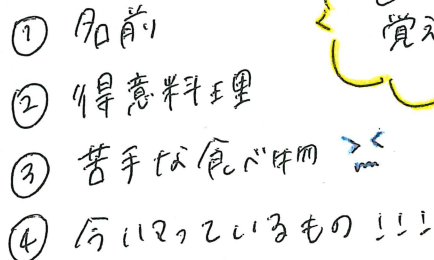 ① 名前
② 得意料理
③ 苦手な食べ物
④ 今ハマっているもの!!!
覚え